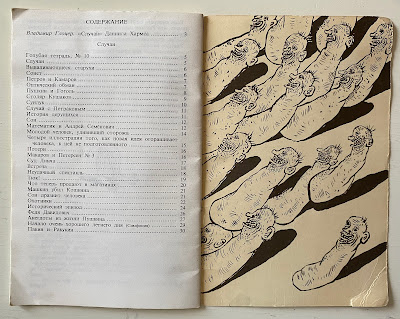 СОДЕРЖАНИЕ
Владимир Глоцер. «Случаи» Даниила Хармса 3
Случаи
Голубая тетрадь № 10
Случаи 5
Вываливающиеся старухи
Сонет
Петров и Камаров
Оптический обман
Пушкин и Гоголь
Столяр Кушаков
Сундук
Случай с Петраковым
История дерущихся
Сон
Математик и Андрей Семенович
Молодой человек, удививший сторожа
Четыре иллюстрации того, как новая идея огорашивает
человека, к ней не подготовленного
Потери
Макаров и Петерсен № 3
Суд Линча
Встреча
Неудачный спектакль
Тюк!
Что теперь продают в магазинах
Машкин убил Кошкина
Сон дразнит человека
Охотники
Исторический эпизод
Федя Давидович
Анекдоты из жизни Пушкина
Начало очень хорошего летнего дня (Симфония)
Пакин и Ракукин 30